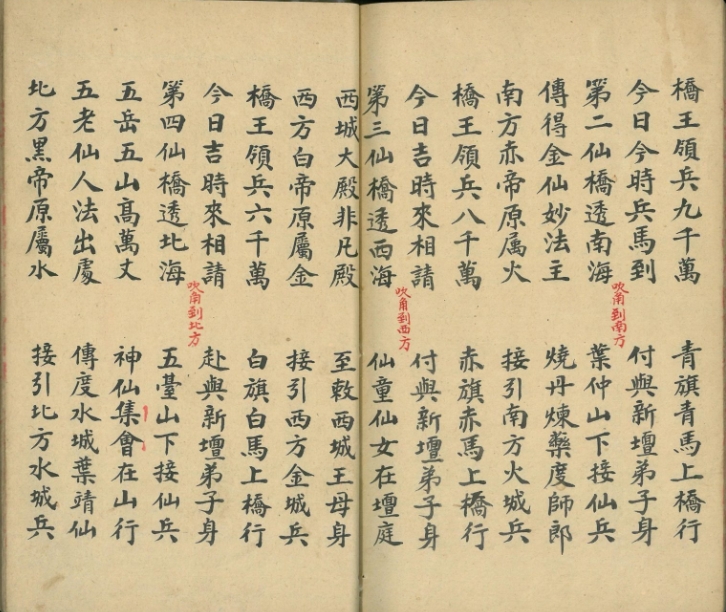 橋王領兵九千萬　青旗青馬上橋行
今日今時兵馬到　付與新壇弟子身
吹角到南方
第二仙橋透南海　葉仲山下接仙兵
傳得金仙妙法主　燒丹煉藥度師郎
南方赤帝原属火　接引南方火城兵
橋王領兵八千萬　赤旗赤馬上橋行
今日吉時來相請　付與新壇弟子身
吹角到西方
第三仙橋透西海　仙童仙女在壇庭
西城大殿非凡殿　至敕西城王母身
西方白帝原屬金　接引西方金城兵
橋王領兵六千萬　白旗白馬上橋行
今日吉時來相請　赴與新壇弟子身
吹角到北方
第四仙橋透北海　五臺山下接仙兵
五岳五山高萬丈　神仙集會在山行
五老仙人法出處　傳度水城葉靖仙
北方黑帝原屬水　接引北方水城兵